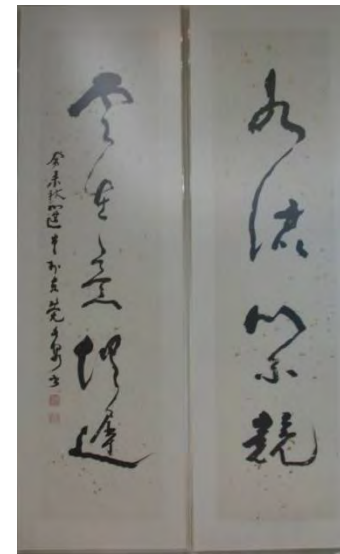 水流心不競
雲在意俱遲
癸未秋 於東莞